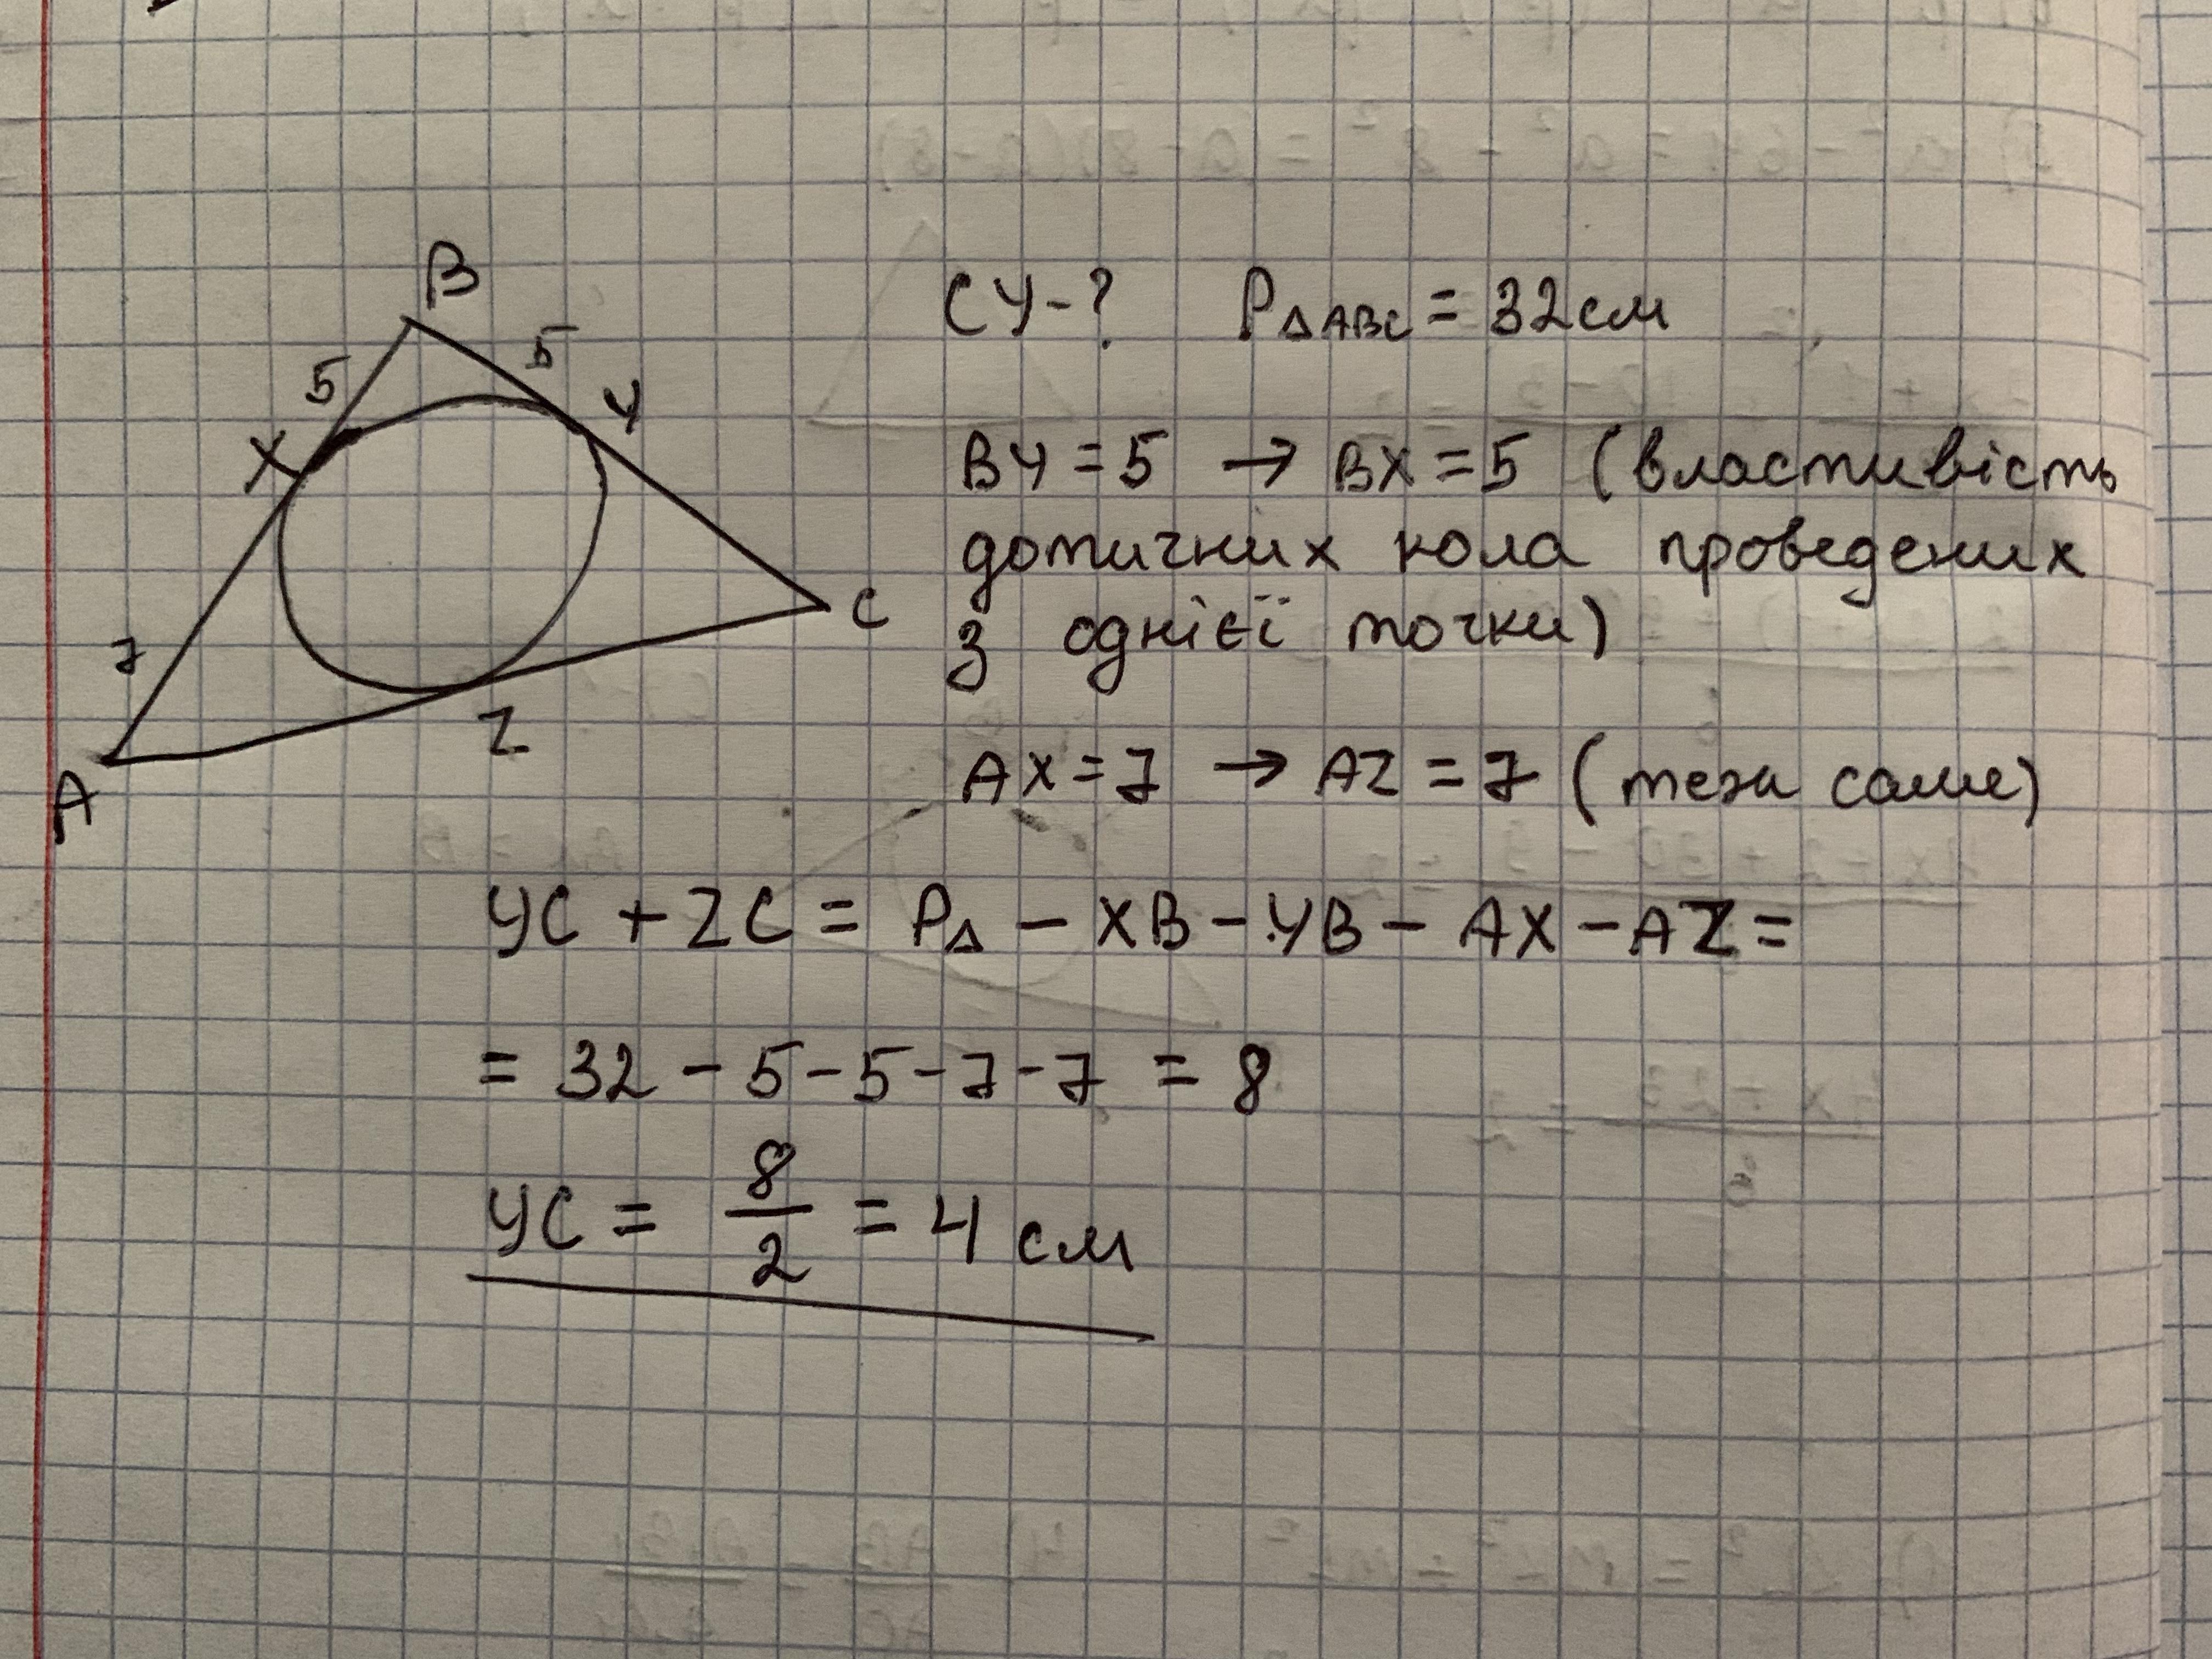 B
5
5
X
У
7
C
Z
A
СУ-? P△ABC = 32см
ВУ = 5 → ВХ = 5 (властивість
дотичних кола проведених
з однієї точки)
AX = 7 → AZ = 7 (теж саме)
УС + ZC = P△ - XB - УВ - AX - AZ =
= 32 - 5 - 5 - 7 - 7 = 8
УС = 8/2 = 4 см